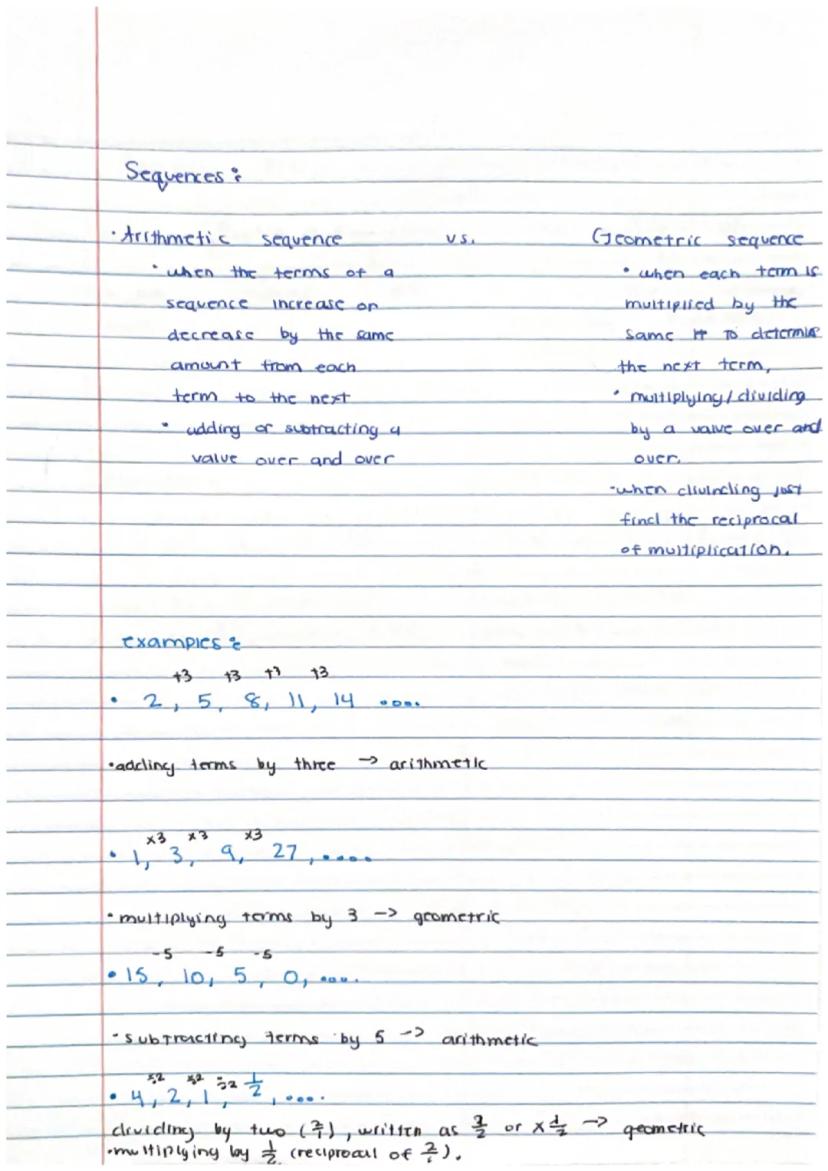 Sequences :
• Arithmetic sequence vs. Geometric sequence
• when the terms of a
sequence increase or
decrease by the same
amount from each
term to the next
• adding or subtracting a
value over and over
• when each term is
multiplied by the
same # to determine
the next term,
• multiplying/dividing
by a value over and
over.
-when dividing just
find the reciprocal
of multiplication.
examples :
+3 +3 +3 +3
• 2, 5, 8, 11, 14 ....
•adding terms by three → arithmetic
x3 x3 x3
• 1, 3, 9, 27, ....
•multiplying terms by 3 → geometric
-5 -5 -5
• 15, 10, 5, 0, ....
•subtracting terms by 5 → arithmetic
÷2 ÷2 ÷2
• 4, 2, 1, 1/2, ....
dividing by two (2/1), written as or x 1/2 → geometric
•multiplying by 1/2 (reciprocal of 2/1).